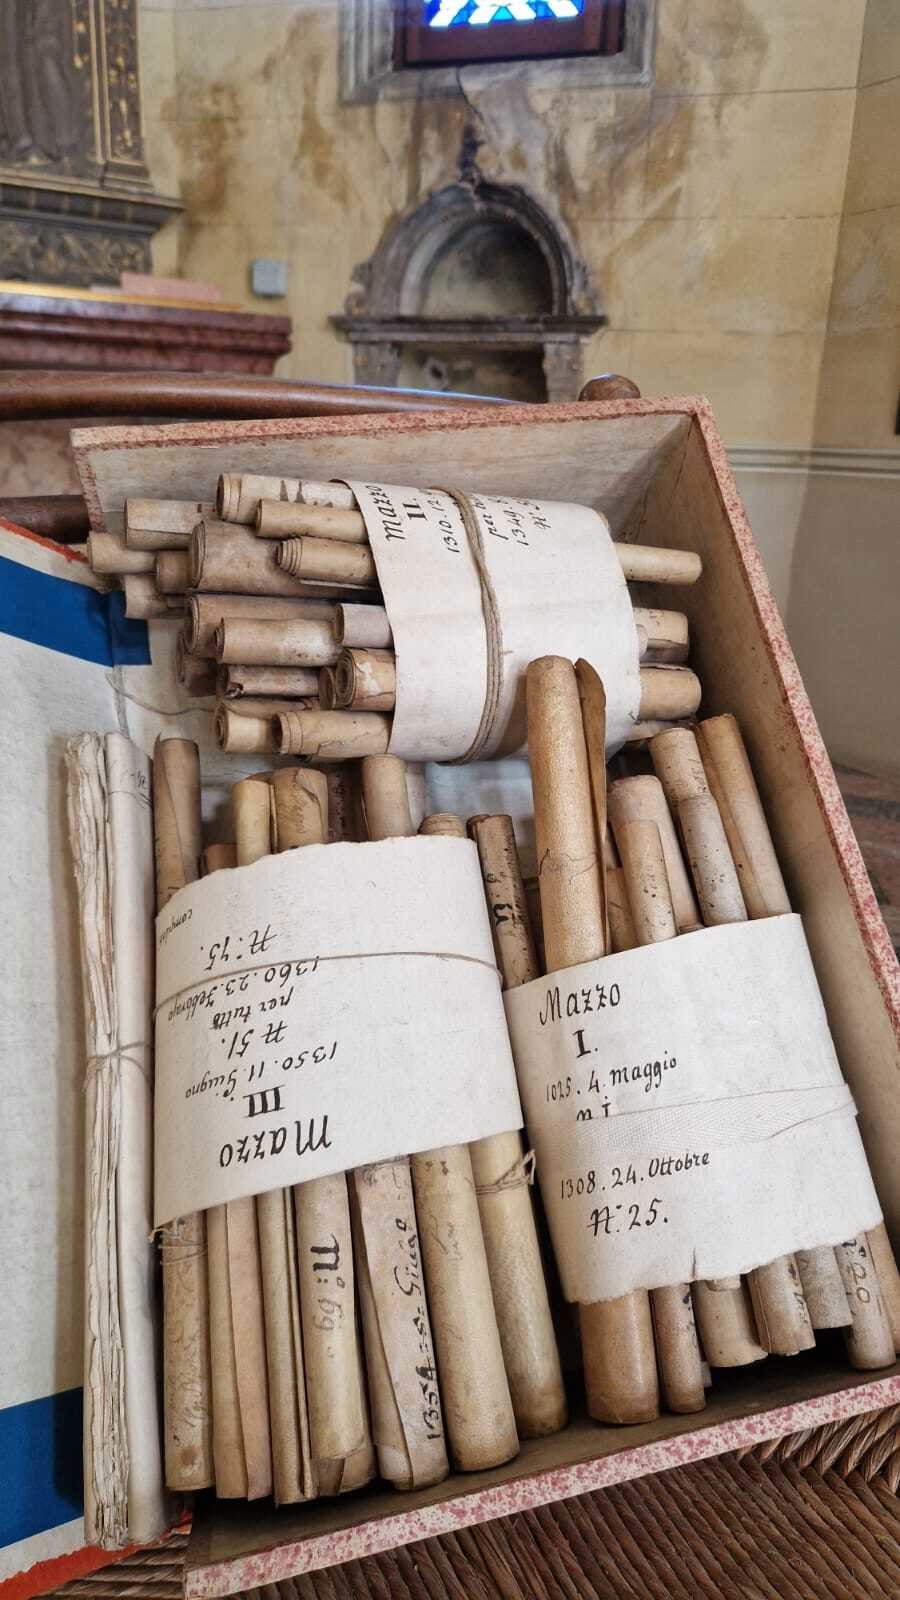 Mazzo
II.
1310.12.
per tutto
1349.
N.
Mazzo
III
1350. 11. Giugno
N. 51.
per tutto
1360. 23. Febbraio
N: 75.
Mazzo
I.
1025. 4. maggio
n. i.
1308. 24. Ottobre
N: 25.
N:° 69
1354
Giugno
N:° 20